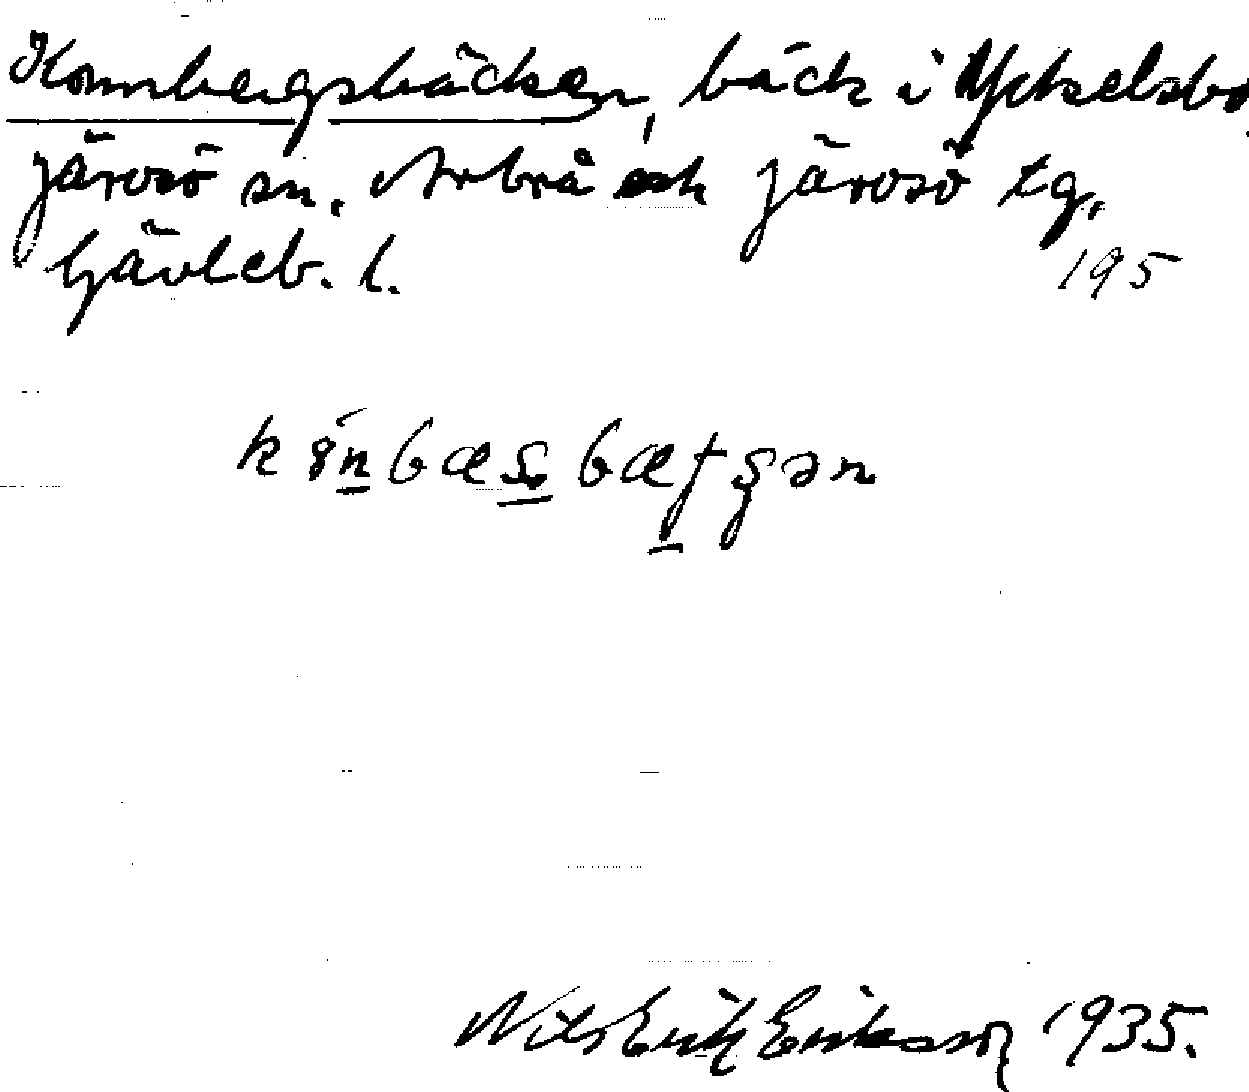 Kornbergsbäcken, bäck i Yckelsbo,
Järvsö sn. Arbrå och Järvsö tg.
Gävleb. l.
195
Nils Erik Eriksson 1935.